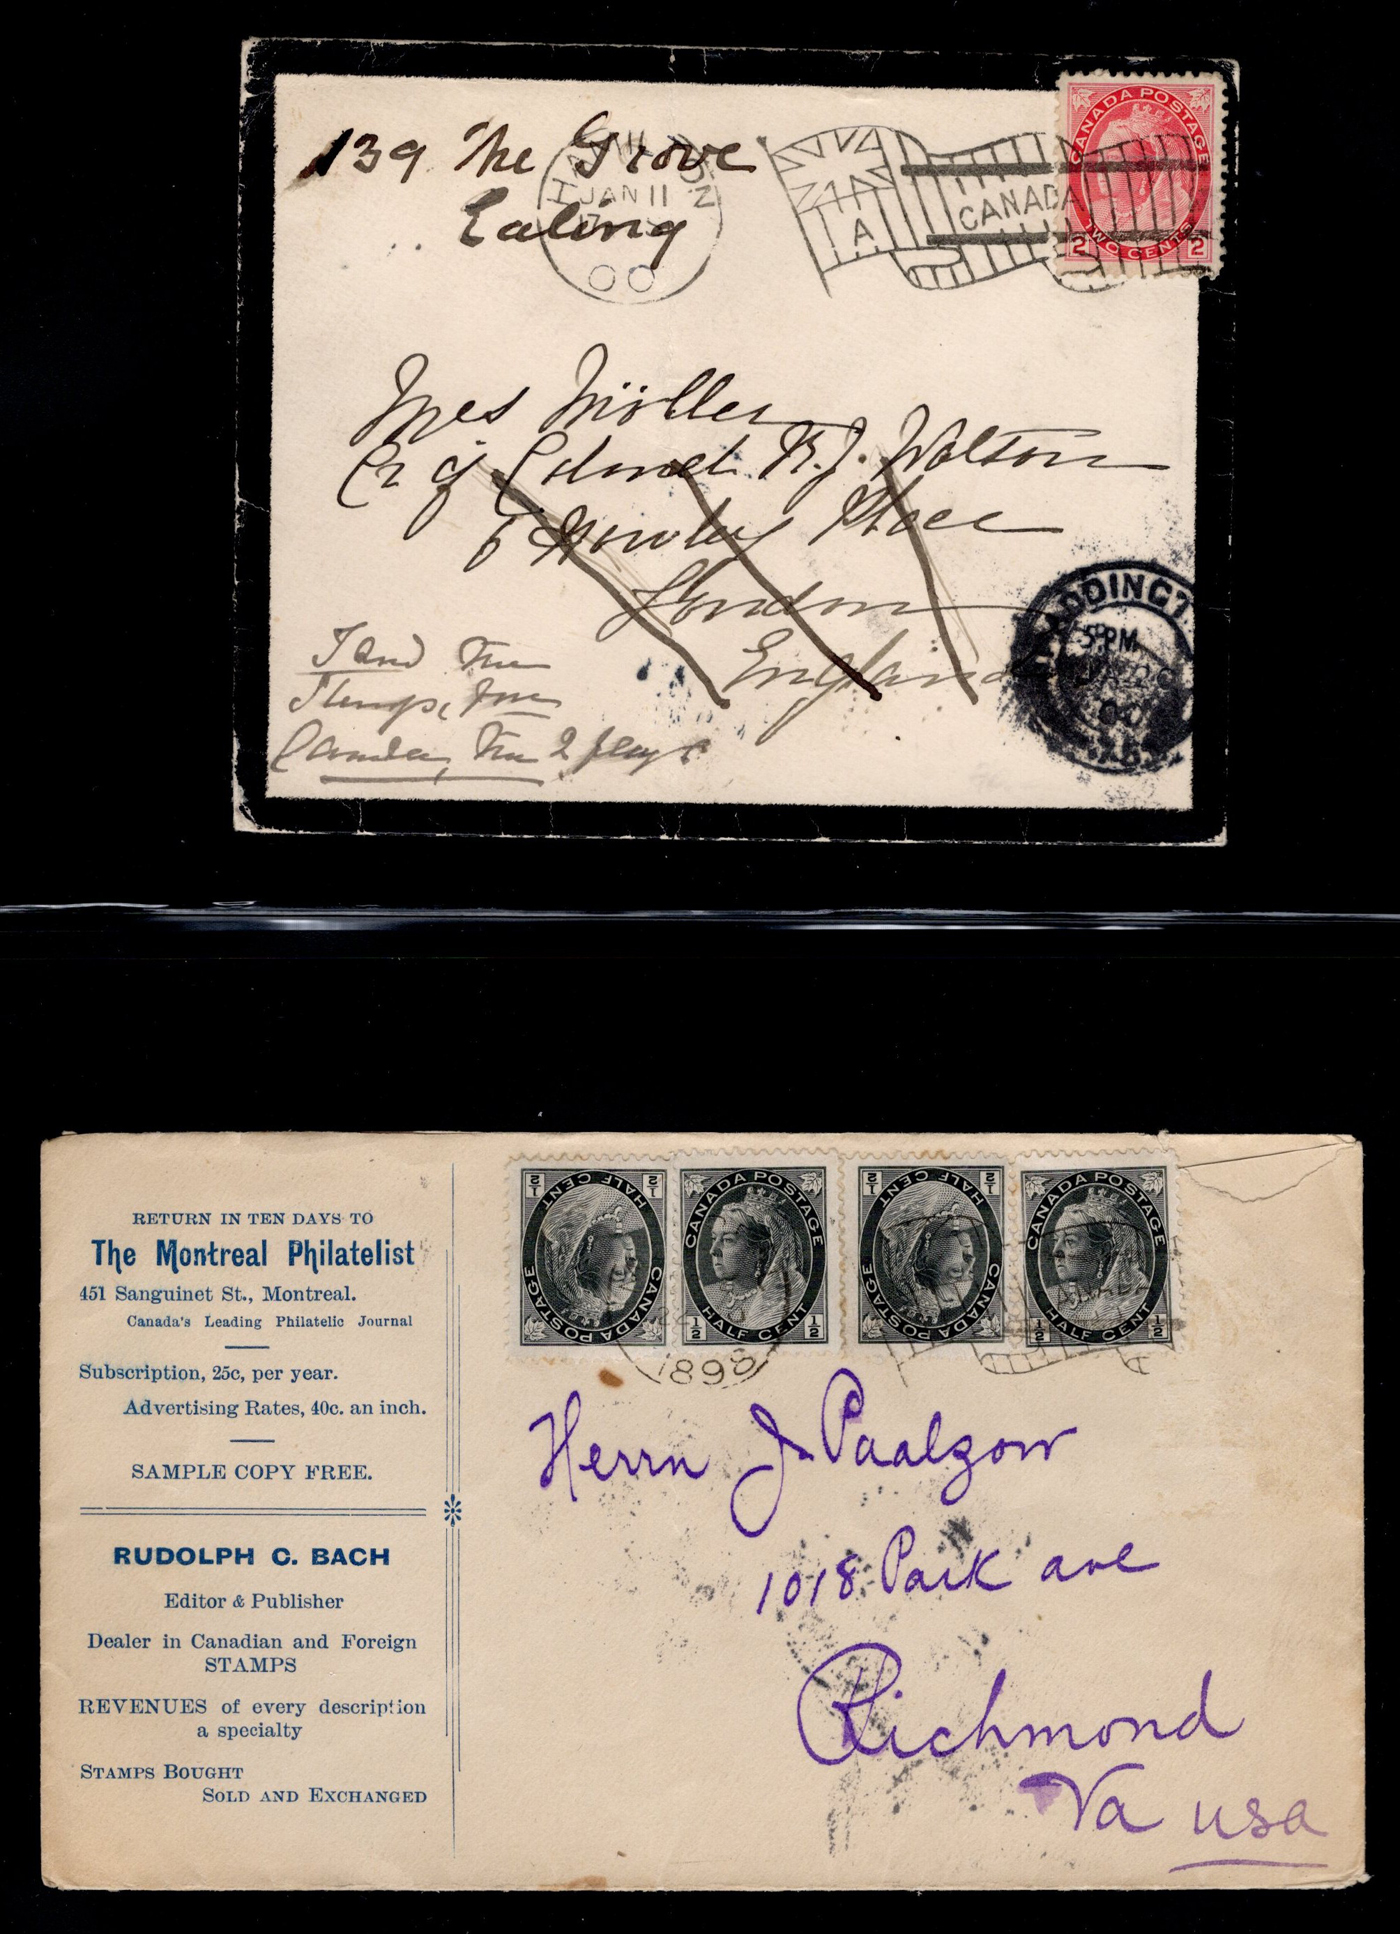 CANADA POSTAGE
TWO CENTS
2 2
139 The Grove
Ealing
HAMILTON
JAN 11
00
A
CANADA
Mrs Möller
Colonel R. J. Watson
Place
London
England
PADDINGT
5 PM
00
Canada, 2
RETURN IN TEN DAYS TO
The Montreal Philatelist
451 Sanguinet St., Montreal.
Canada's Leading Philatelic Journal
Subscription, 25c, per year.
Advertising Rates, 40c. an inch.
SAMPLE COPY FREE.
RUDOLPH C. BACH
Editor & Publisher
Dealer in Canadian and Foreign
STAMPS
REVENUES of every description
a specialty
STAMPS BOUGHT
SOLD AND EXCHANGED
CANADA POSTAGE
HALF CENT
½ ½
CANADA POSTAGE
HALF CENT
½ ½
CANADA POSTAGE
HALF CENT
½ ½
CANADA POSTAGE
HALF CENT
½ ½
CANADA
Herrn J. Paalzow
1018 Park ave
Richmond
Va USA